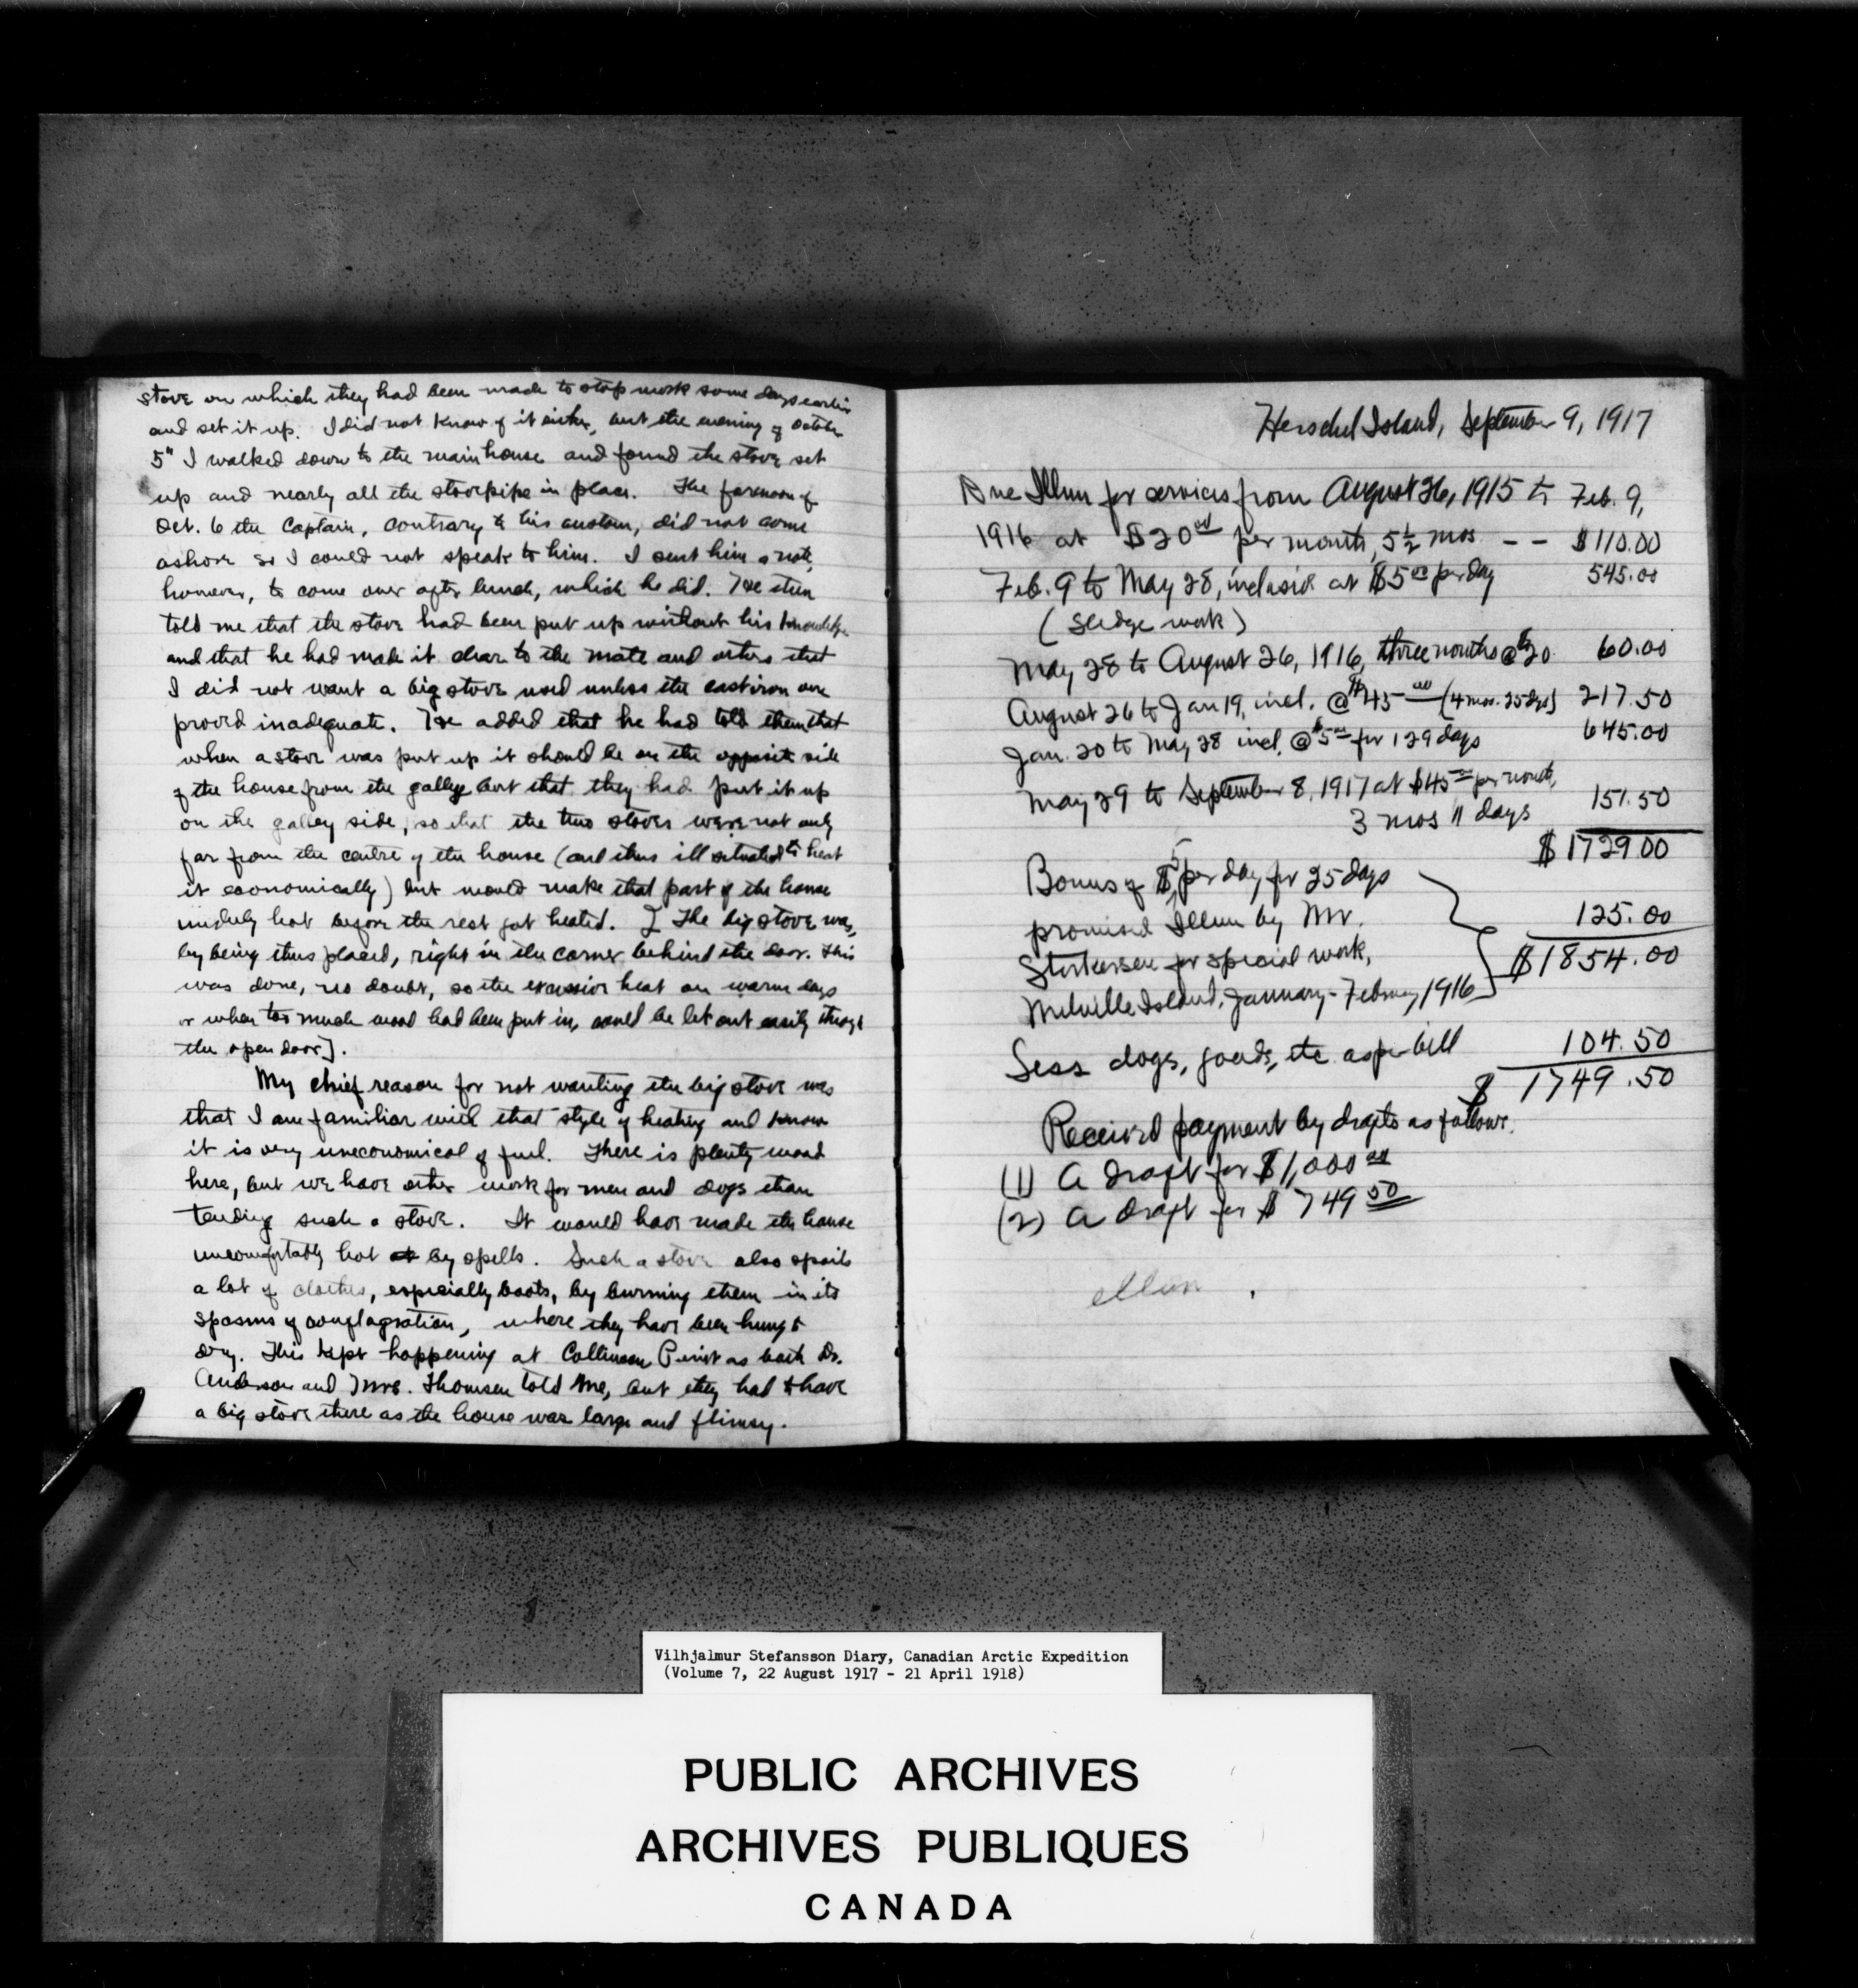 stove on which they had been made to stop work some days earlier
and set it up. I did not know of it either, but the evening of October
5" I walked down to the main house and found the stove set
up and nearly all the stovepipe in place. The forenoon of
Oct. 6 the Captain, contrary to his custom, did not come
ashore so I could not speak to him. I sent him a note,
however, to come over after lunch, which he did. He then
told me that the stove had been put up without his knowledge
and that he had made it clear to the mate and others that
I did not want a big stove used unless the cast iron one
proved inadequate. He added that he had told them that
when a stove was put up it should be on the opposite side
of the house from the galley but that they had put it up
on the galley side, so that the two stoves were not only
far from the centre of the house (and thus ill situated to heat
it economically) but would make that part of the house
unduly hot before the rest got heated. [The big stove was,
by being thus placed, right in the corner behind the door. This
was done, no doubt, so the excessive heat on warm days
or when too much wood had been put in, could be let out easily through
the open door].
My chief reason for not wanting the big stove was
that I am familiar with that style of heating and know
it is very uneconomical of fuel. There is plenty wood
here, but we have other work for men and dogs than
tending such a stove. It would have made the house
uncomfortably hot by spells. Such a stove also spoils
a lot of clothes, especially boots, by burning them in its
spasms of conflagration, where they have been hung to
dry. This kept happening at Collinson Point as both Dr.
Anderson and Mrs. Thomsen told me, but they had to have
a big stove there as the house was large and flimsy.
Herschel Island, September 9, 1917
Due Illun for services from August 26, 1915 to Feb. 9,
1916 at $20 00 per month, 5 1/2 mos -- $110.00
Feb. 9 to May 28, inclusive at $5 00 per day 545.00
(sledge work)
May 28 to August 26, 1916, three months @ $20 60.00
August 26 to Jan 19, incl. @ $45 00 (4 mos. 25 dys) 217.50
Jan. 20 to May 28 incl. @ $5 00 for 129 days 645.00
May 29 to September 8, 1917 at $45 00 per month,
3 mos 11 days 151.50
$1729.00
Bonus of $5 per day for 25 days
promised Illun by Mr. 125.00
Storkersen for special work, $1854.00
Melville Island, January-February 1916
Less dogs, goods, etc as per bill 104.50
$ 1749.50
Received payment by drafts as follows.
(1) A draft for $1,000 00
(2) A draft for $ 749 50
illun .
Vilhjalmur Stefansson Diary, Canadian Arctic Expedition
(Volume 7, 22 August 1917 - 21 April 1918)
PUBLIC ARCHIVES
ARCHIVES PUBLIQUES
CANADA